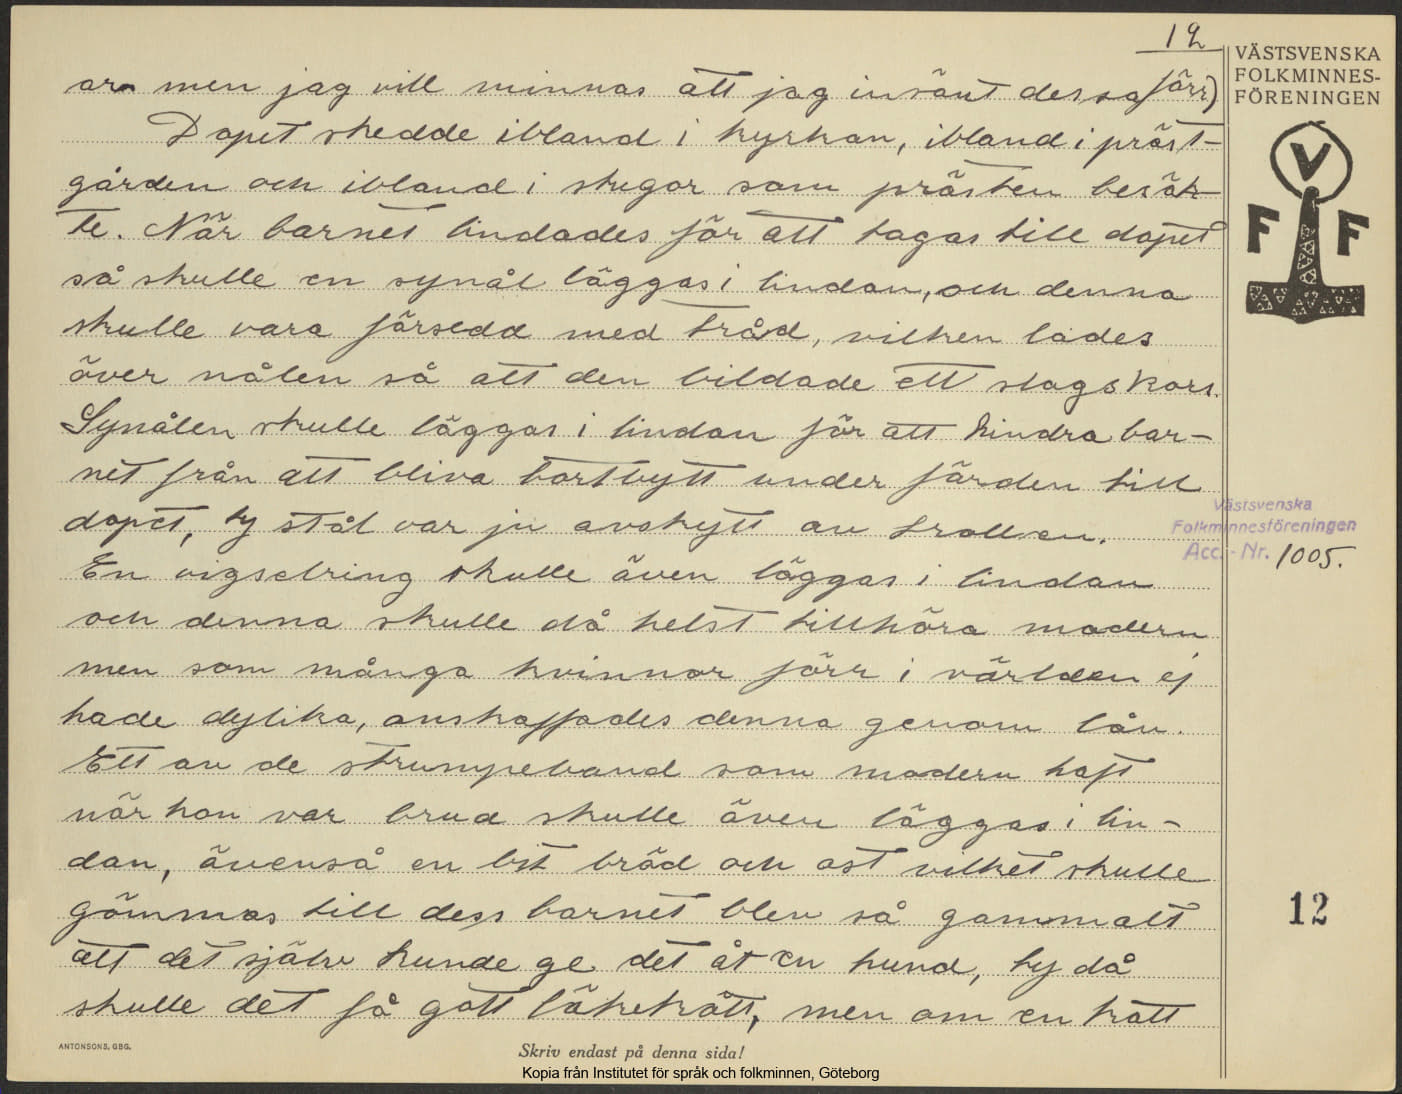 12
VÄSTSVENSKA
FOLKMINNES-
FÖRENINGEN
ar men jag vill minnas att jag insänt dessa förr)
Dopet skedde ibland i kyrkan, ibland i präst-
gården och ibland i stugor som prästen besök-
te. När barnet lindades för att tagas till dopet
så skulle en synål läggas i lindan, och denna
skulle vara försedd med tråd, vilken lades
över nålen så att den bildade ett slags kors.
Synålen skulle läggas i lindan för att hindra bar-
net från att bliva bortbytt under färden till
dopet, ty stål var ju avskytt av trollen.
En vigselring skulle även läggas i lindan
och denna skulle då helst tillhöra modern
men som många kvinnor förr i världen ej
hade dylika, anskaffades denna genom lån.
Ett av de strumpeband som modern haft
när hon var brud skulle även läggas i lin-
dan,ävenså en bit bröd och ost vilket skulle
gömmas till dess barnet blev så gammalt
att det själv kunde ge det åt en hund, ty då
skulle det få gott läkekött, men om en katt
V
F F
Västsvenska
Folkminnesföreningen
Acc.-Nr. 1005.
12
ANTONSONS, GBG.
Skriv endast på denna sida!
Kopia från Institutet för språk och folkminnen, Göteborg